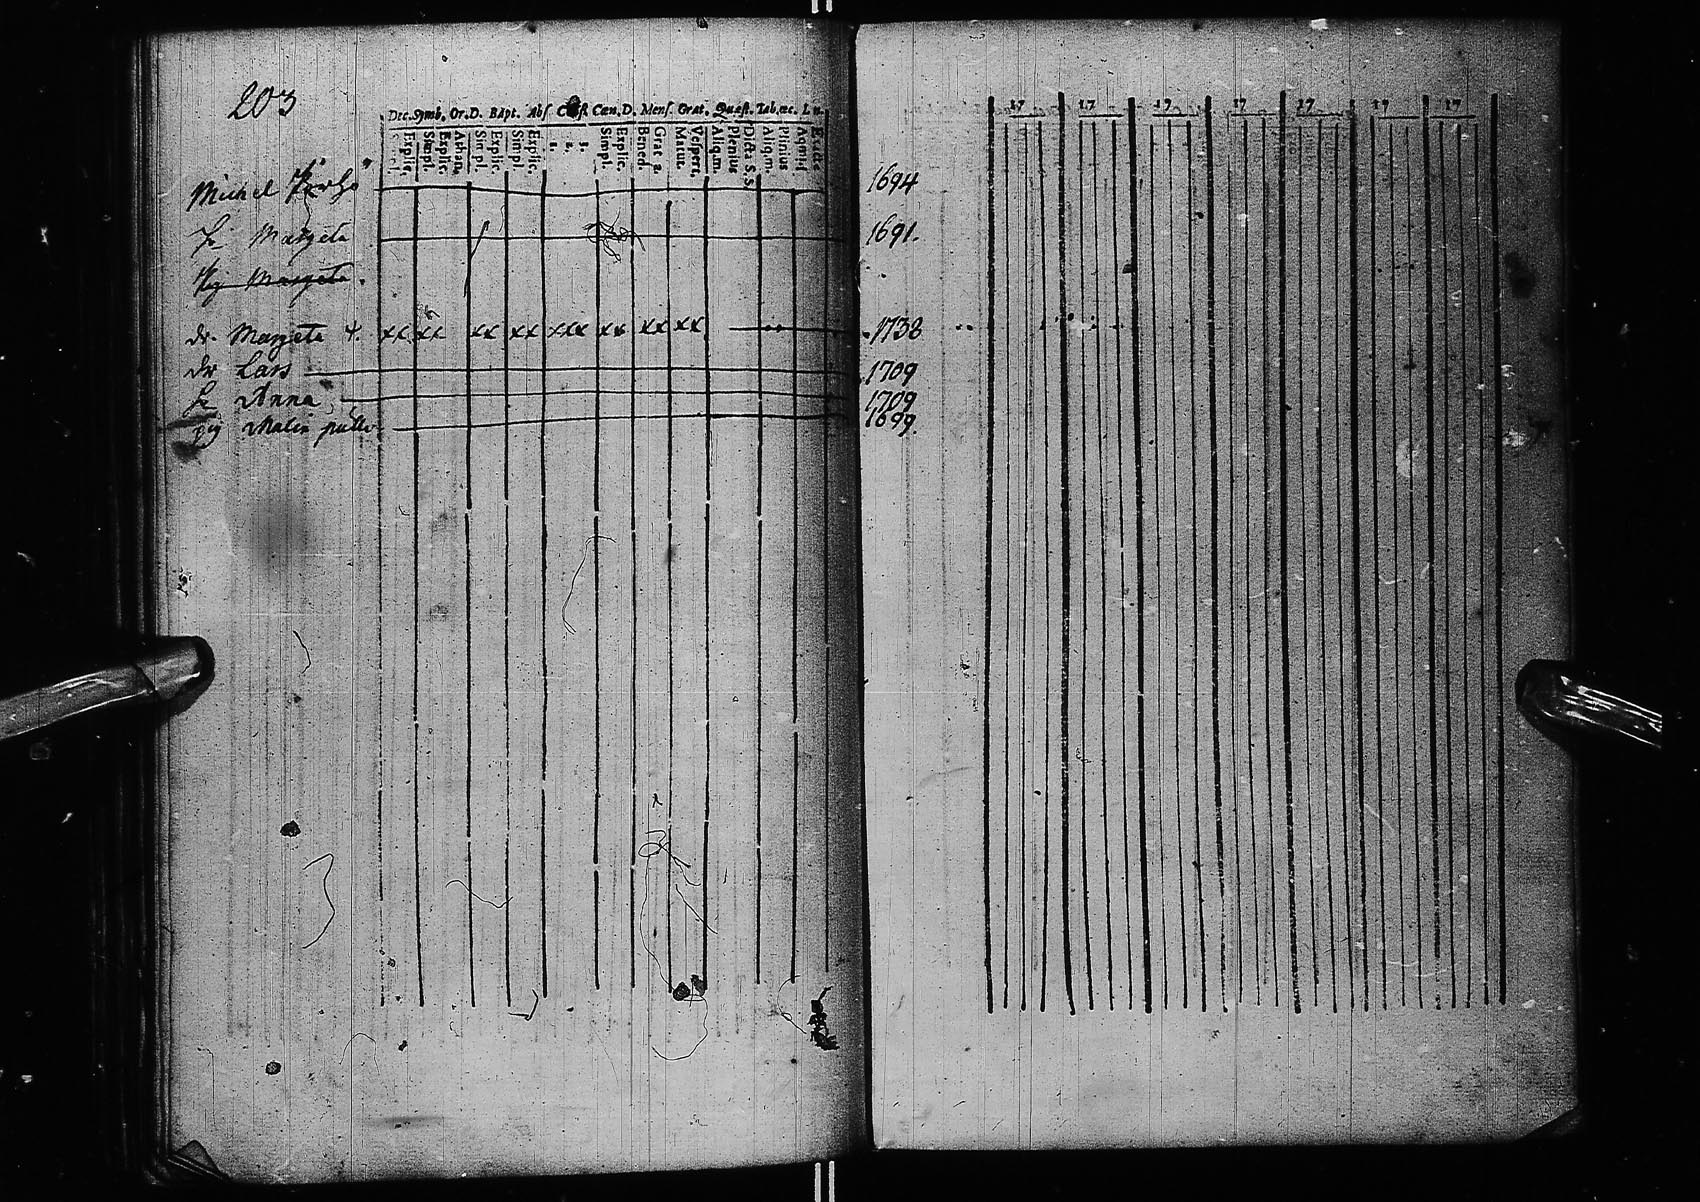 203
Dec. Symb. Or. D. Bapt. Abs. Cœn. D. Mens. Grat. Quæst. Tab. œc.
Explic. Simpl. Explic. Athan. Simpl. Explic. Simpl. Explic. 1. 2. 3. Simpl. Explic. Bened. Grat. a. Matut. Vespert. Aliq. m. Plenius Dicta S. S. Aliq. m. Plenius
17 17 17 17 17 17 17
Michel 1694
H: Margeta 1691.
Pig Margeta.
dr. Margeta xx xx xx xx xxx xx xx xx 1738
dr Lars 1709
H: Anna 1709
pig Malin 1699.